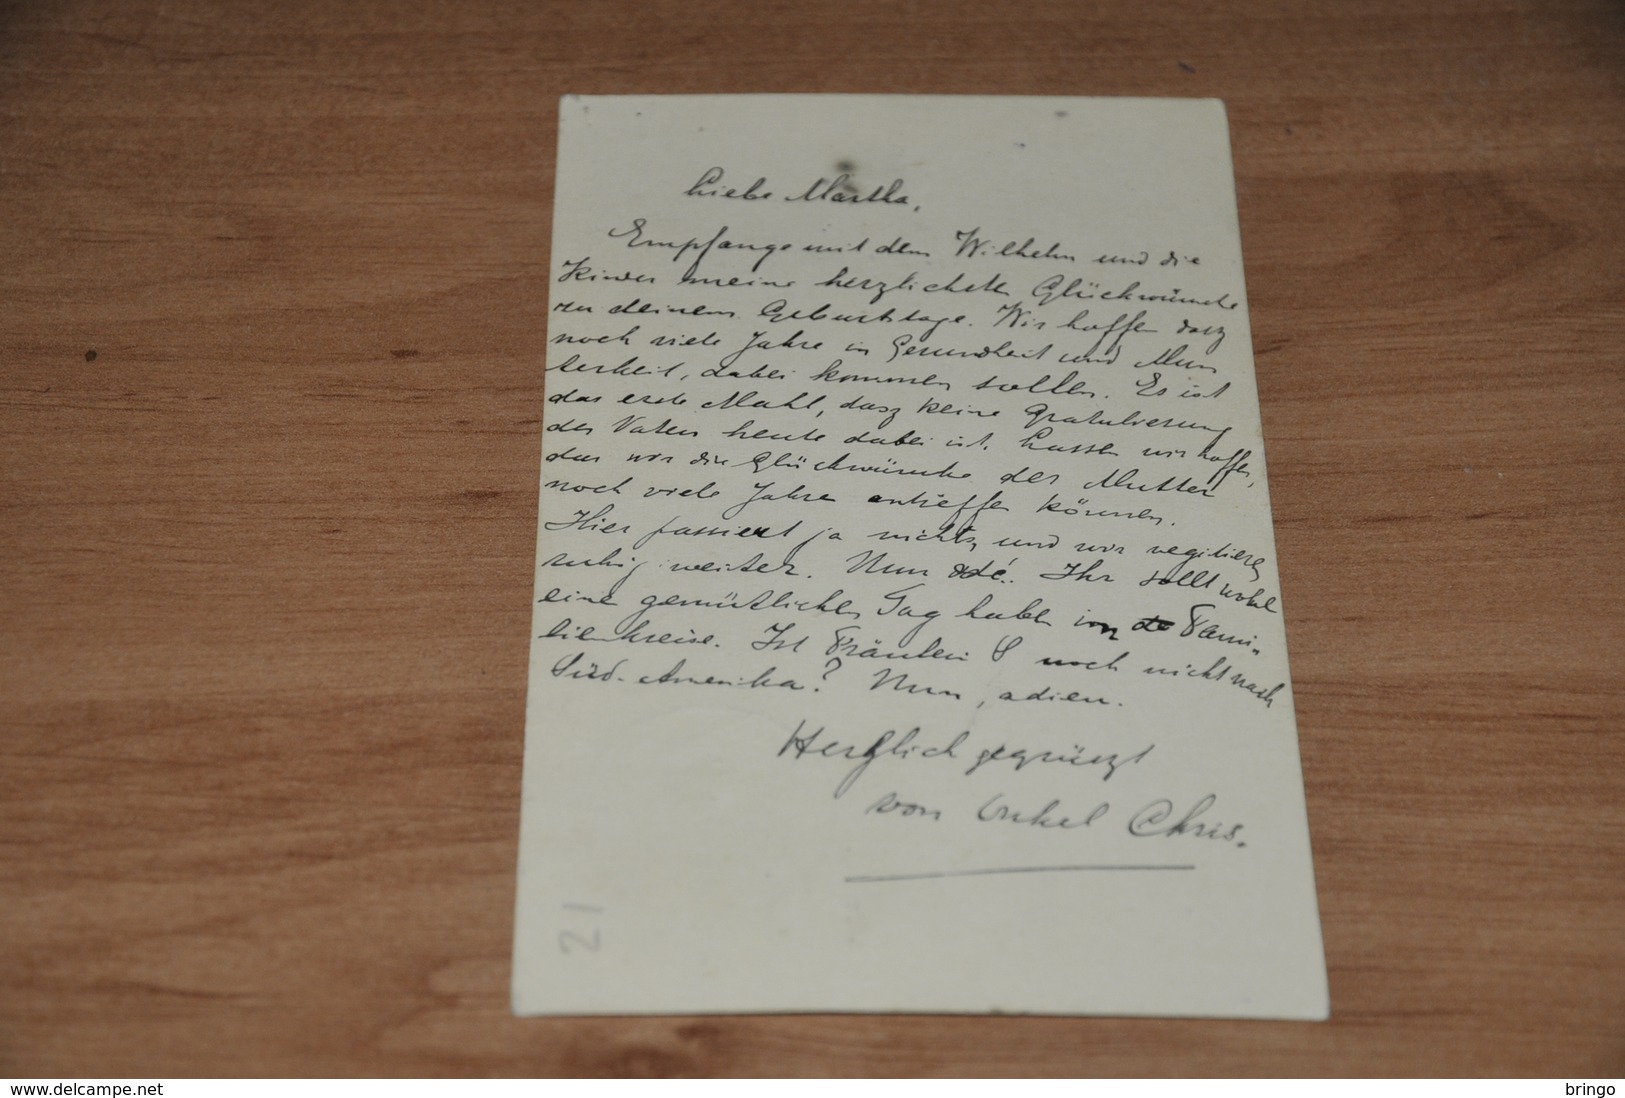 Liebe Martha,
Empfange mit dem Wilhelm und die
Kinder meine herzlichsten Glückwünsche
zu deinem Geburtstage. Wir hoffen dasz
noch viele Jahre in Gesundheit und Mun
terkeit, dabei kommen sollen. Es ist
das erste Mahl, dasz keine Gratulierung
des Vaters heute dabei ist. Lassen wir hoffen,
das wir die Glückwünsche der Mutter
noch viele Jahre antreffen können.
Hier passiert ja nichts, und wir vegitieren
ruhig weiter. Nun adé. Ihr sollt wohl
eine gemütlichen Tag haben im Fami-
lienkreise. Ist Fräulein S noch nicht nach
Süd-Amerika? Nun, adieu.
Herzlich gegrüszt
von Onkel Chris.
21
www.delcampe.net
bringo